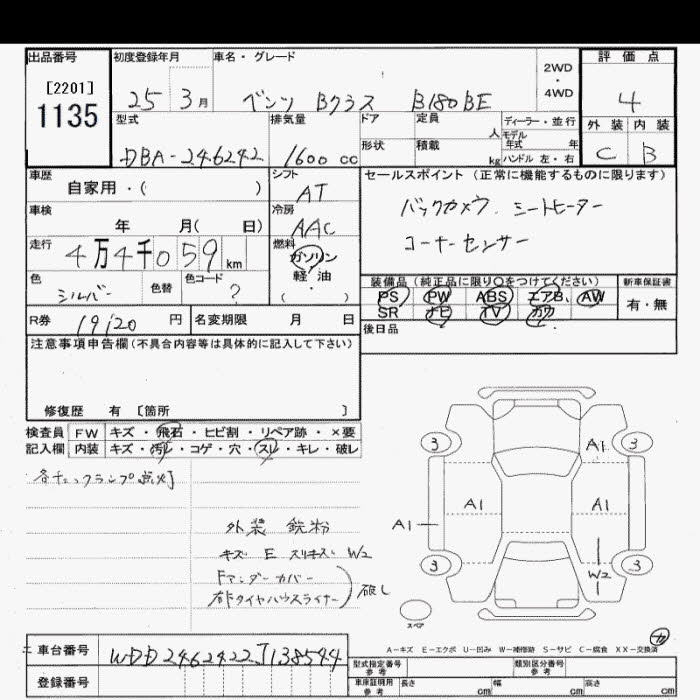 出品番号 初度登録年月 車名・グレード 評価点
[2201]
1135
25 3月 ベンツ Bクラス B180BE
2WD
・
4WD
4
外装 内装
C B
型式 排気量 ドア 定員 人 ディーラー・並行
モデル
年式 年
DBA-246242 1600cc 形状 積載 kg ハンドル 左・右
車歴 シフト セールスポイント(正常に機能するものに限ります)
自家用・( ) AT
バックカメラ. シートヒーター
車検 冷房
年 月( 日) AAC
コーナーセンサー
走行 燃料
4万4千059km ガソリン
軽・油
( )
色 色替 色コード
シルバー ?
装備品(純正品に限り○をつけてください) 新車保証書
PS PW ABS エアB AW 有・無
SR ナビ TV カワ
R券 19120円 名変期限 月 日
後日品
注意事項申告欄(不具合内容等は具体的に記入して下さい)
修復歴 有 [箇所 ]
検査員 FW キズ・飛石・ヒビ割・リペア跡・×要
記入欄 内装 キズ・汚レ・コゲ・穴・スレ・キレ・破レ
各チェックランプ点灯
外装 鉄粉
キズ E スリキズ W2
Fアンダーカバー
右Fタイヤハウスライナー
破レ
3 A1 3
A1 A1
A1
3 W2 3
スペア
カ
A-キズ E-エクボ U-凹み W-補修跡 S-サビ C-腐食 XX-交換済
車台番号 WDD2462422J138544
登録番号
型式指定番号
参考
類別区分番号
参考
車庫証明用
参考
長さ cm 幅 cm 高さ cm